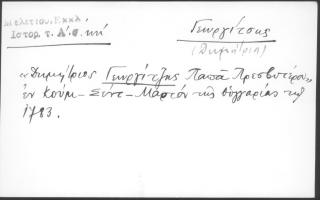 Μελετίου, Εκκλ.
Ἱστορ. τ. Δ΄. σ.
Γεωργίτσης
(Δημήτριος)
«Δημήτριος Γεωργίτζης Παπᾶ Πρεσβυτέρου»
ἐν Κούμ - Σέντ - Μαρτόν τῆς Οὑγγαρίας τῷ
1783.